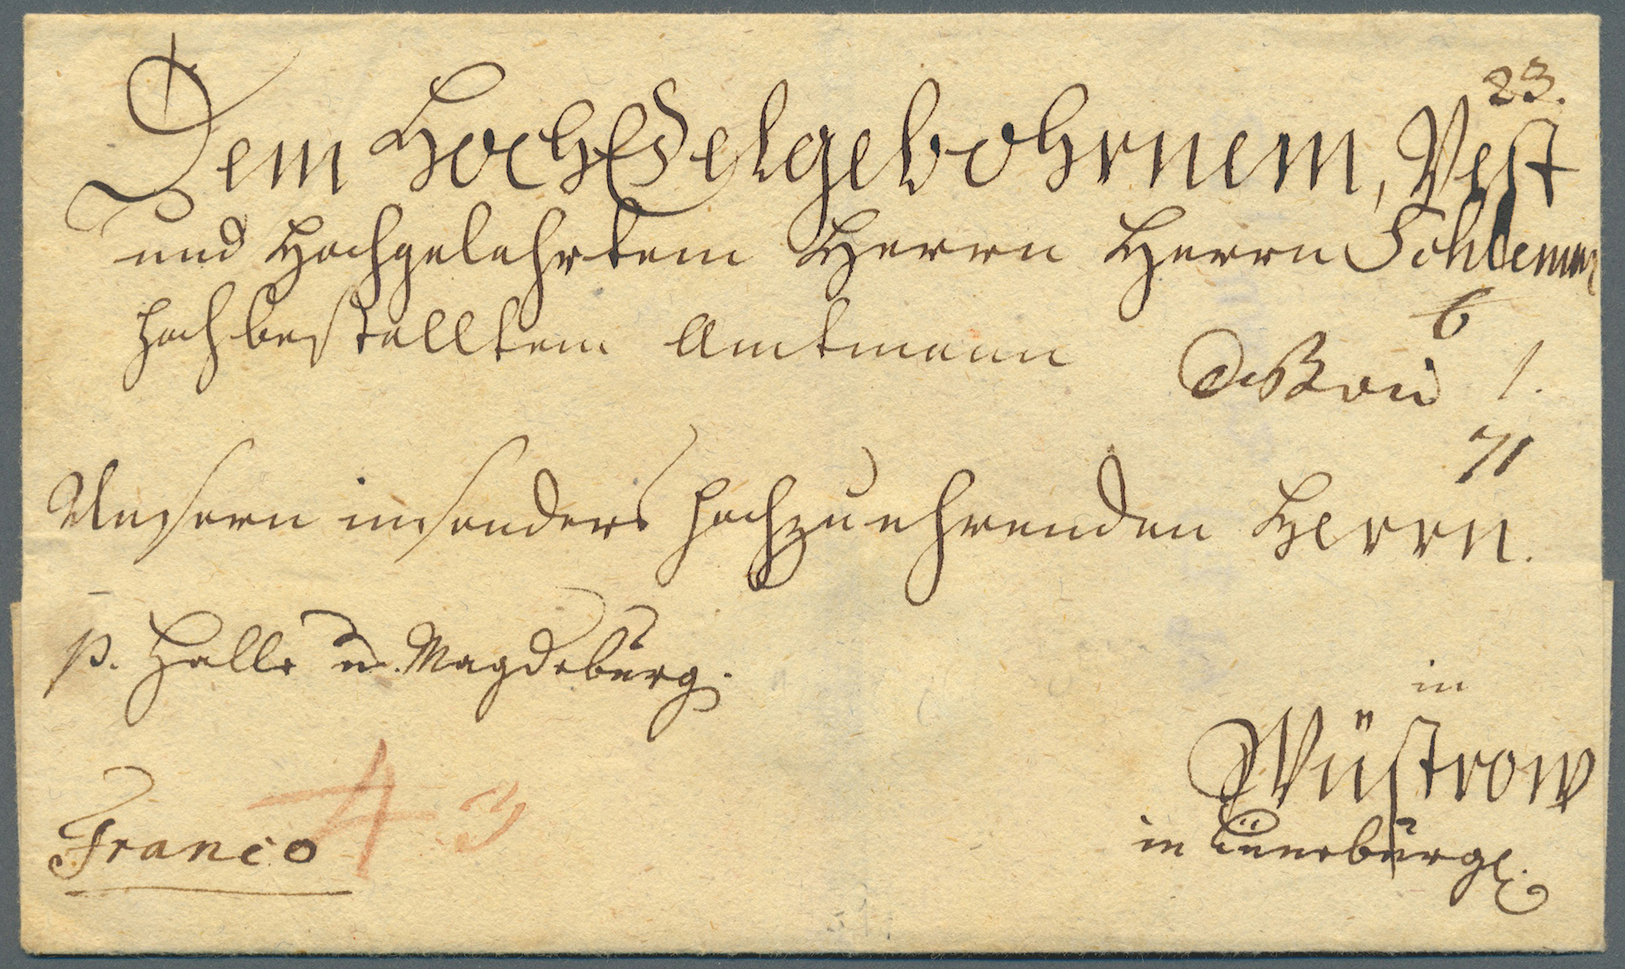 23.
Dem HochEdelgebohrnem, Vest
und Hochgelahrtem Herrn Herrn Schlemm
hochbestalltem Amtmann
6
1.
71
Unsern insonders hochzuehrenden Herrn.
p. Halle u. Magdeburg.
in
Wüstrow
in Lüneburgl.
Franco
4 3